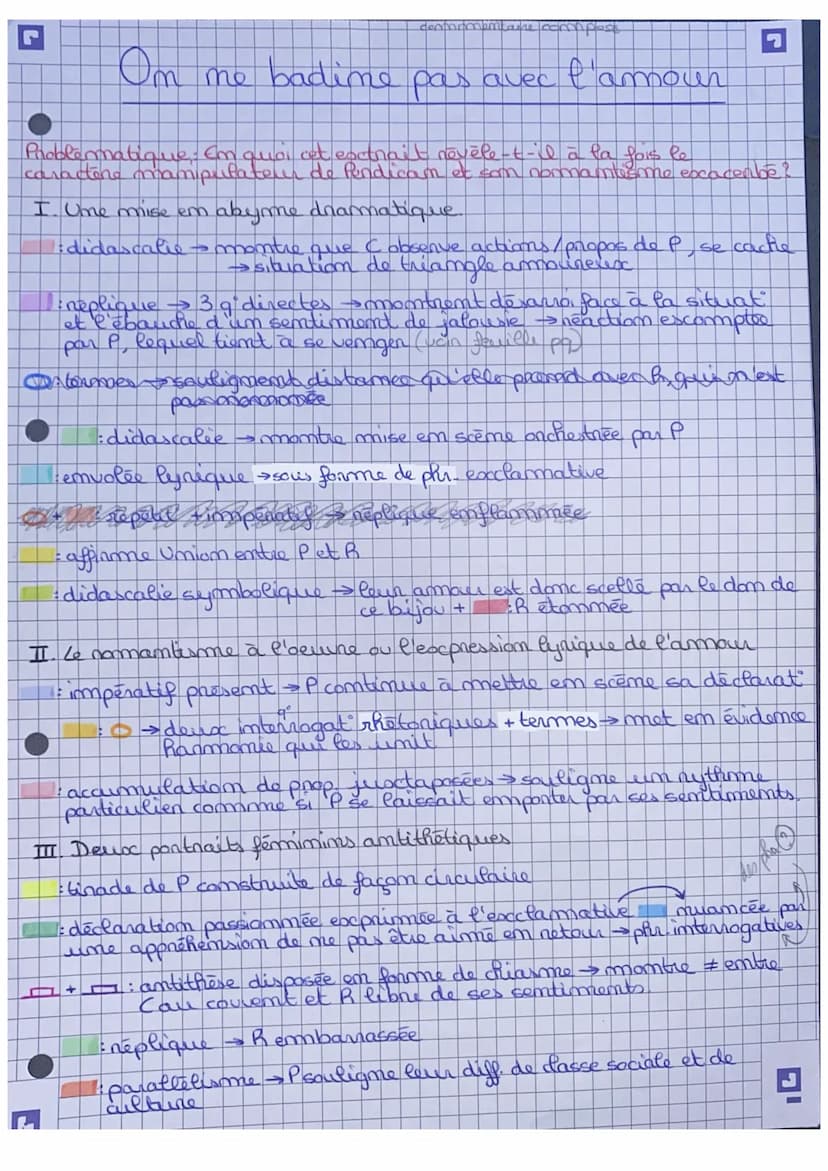 On ne badine pas avec l'amour
Problématique : En quoi cet extrait révèle-t-il à la fois le
caractère manipulateur de Perdican et son romantisme exacerbé ?
I. Une mise en abyme dramatique.
: didascalie → montre que C observe actions/propos de P, se cache
→ situation de triangle amoureux
: réplique → 3 q° directes → montrent désarroi face à la situat°
et l'ébauche d'un sentiment de jalousie → réaction escomptée
par P, lequel tient à se venger (voir feuille pq)
: termes → soulignent distance qu'elle prend avec P, qui n'est
pas
: didascalie → montre mise en scène orchestrée par P
: envolée lyrique → sous forme de phr. exclamative
+ : répét° + impératif → réplique enflammée
: affirme union entre P et R
: didascalie symbolique → leur amour est donc scellé par le don de
ce bijou + : R étonnée
II. Le romantisme à l'œuvre ou l'expression lyrique de l'amour
: impératif présent → P continue à mettre en scène sa déclarat°
q°
: → deux interrogat° rhétoriques + termes → met en évidence
harmonie qui les unit
: accumulation de prop. juxtaposées → souligne un rythme
particulier comme si P se laissait emporter par ses sentiments.
III. Deux portraits féminins antithétiques
: tirade de P construite de façon circulaire
: déclaration passionnée exprimée à l'exclamative nuancée par
une appréhension de ne pas être aimé en retour → phr. interrogatives
+ : antithèse disposée en forme de chiasme → montre ≠ entre
C au couvent et R libre de ses sentiments
: réplique → R embarrassée
: parallélisme → P souligne leur diff. de classe sociale et de
culture